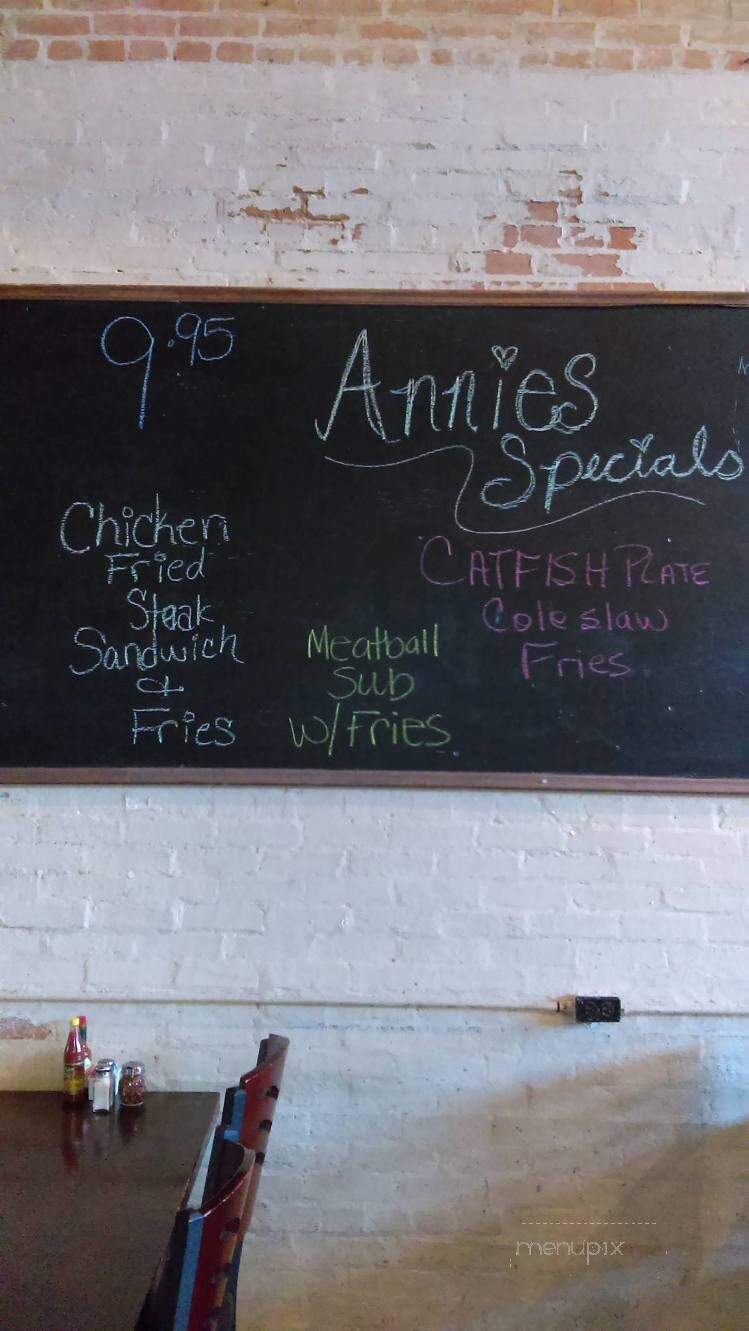 9.95
Annies
Specials
Chicken
Fried
Steak
Sandwich
&
Fries
Meatball
Sub
w/Fries
CATFISH PLATE
Cole slaw
Fries
menupix